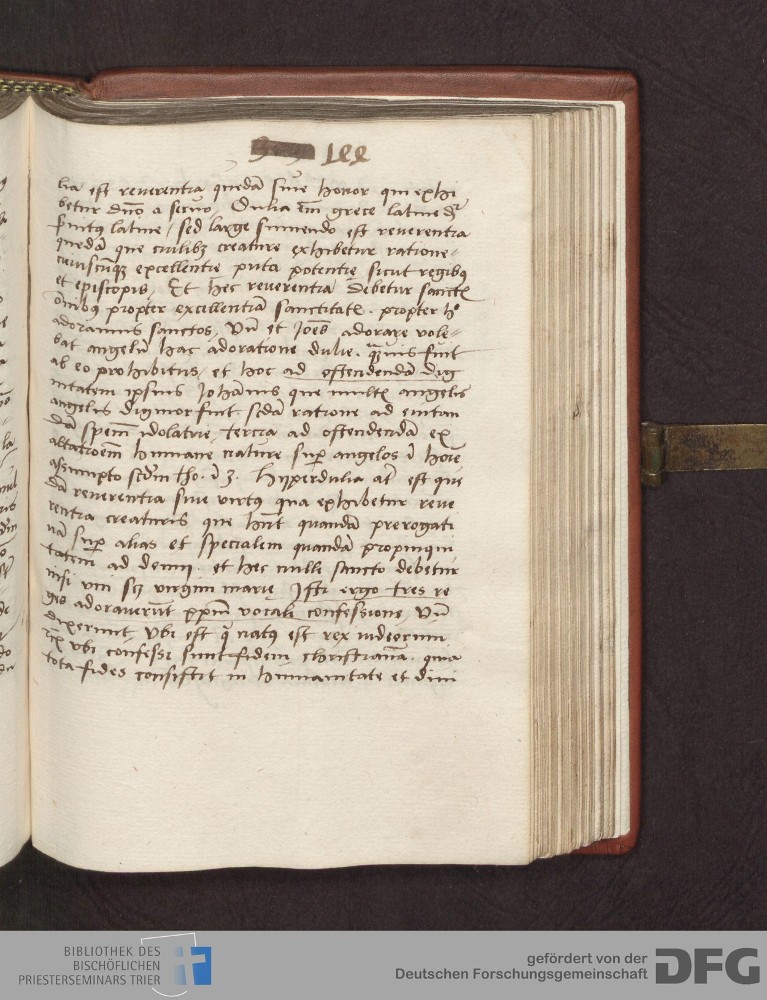 lia est reuerentia quedā siue honor qui exhi
betur dn̄o a seruo, Dulia em̄ grece latine dr̄
s̄uitus latine / sed large sumendo est reuerentia
quedā que cuilibʒ creature exhibetur ratione
cuiuscūqʒ excellentie puta potentie sicut regibꝰ
et episcopis, Et hec reuerentia debetur sanctꝭ
om̄ibꝰ propter excellentiā sanctitatꝭ. propter hᵒ
adoramus sanctos, Vn̄ et Joēs adorare vole-
bat angelū hac adoratione dulie. quāuis fuit
ab eo prohibitus, et hoc ad ostendendā dig
nitatem ipsius Johānis, que multꝭ angelis
angelis dignior fuit. scdā ratione ad euitan
dā spem̄ idolatrie, tercia ad ostendendā ex
altatioem̄ humane nature sup̄ angelos ī hoīe
assumpto scdm̄ tho. ī 3. Hyperdulia at̄ est que
dā reuerentia siue virtꝰ qua exhibetur reue
rentia creaturis que hn̄t quandā prerogati
uā sup̄ alias et specialem quandā propinqui
tatem ad deum. et hec nulli sancto debetur
nisi vni scʒ virgini marie, Isti ergo tres re
ges adorauerūt xp̄m vocali confessione, Vn̄
dixerunt, Vbi est q̄ natꝰ est rex iudeorum
vbi confessi sunt fidem christianā. quia
tota fides consistit in humanitate et diui
BIBLIOTHEK DES
BISCHÖFLICHEN
PRIESTERSEMINARS TRIER
gefördert von der
Deutschen Forschungsgemeinschaft
DFG